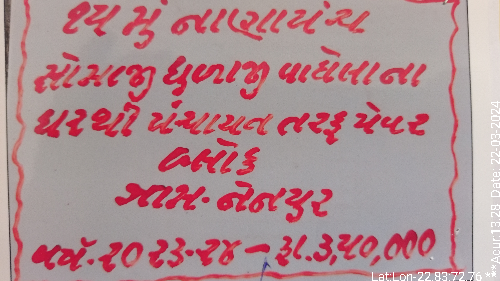 ૧૫ મું નાણાપંચ
સોમાજી ધુળાજી વાઘેલાના
ઘરથી પંચાયત તરફ પેવર
બ્લોક
ગામ-નેનપુર
વર્ષ-૨૦૨૩-૨૪-રૂા.૩,૫૦,૦૦૦
LatLon-22.83:72.76
**Agur 13:28 Date: 22-03-2024